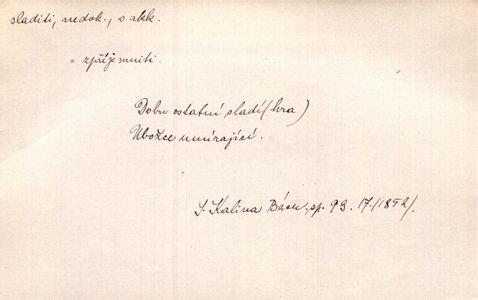 sladiti, nedok., s akk.
= zpříjemniti.
Dobu ostatní sladí (hra)
Ubožce umírající.
J. Kalina Básn. sp. 93. 17. /1852/.